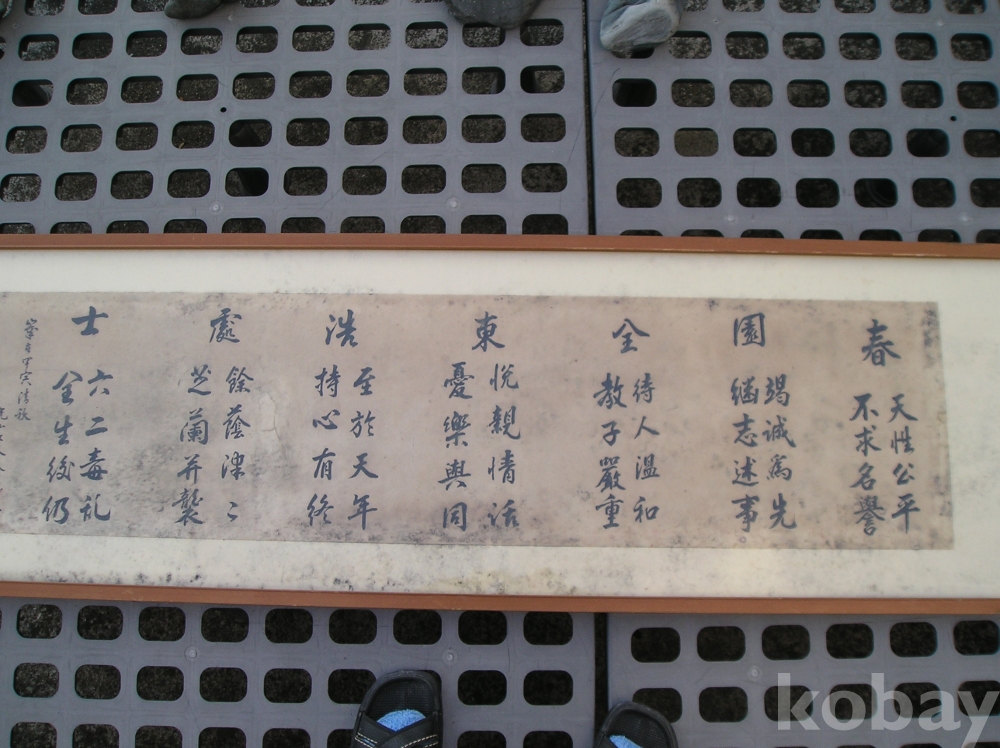 春
天性公平
不求名譽
園
竭誠爲先
繼志述事
全
待人溫和
教子嚴重
東
悅親情話
憂樂與同
浩
至於天年
持心有終
處
餘蔭津〻
芝蘭并襲
士
六二毒乱
全生後仍
甲寅
kobay